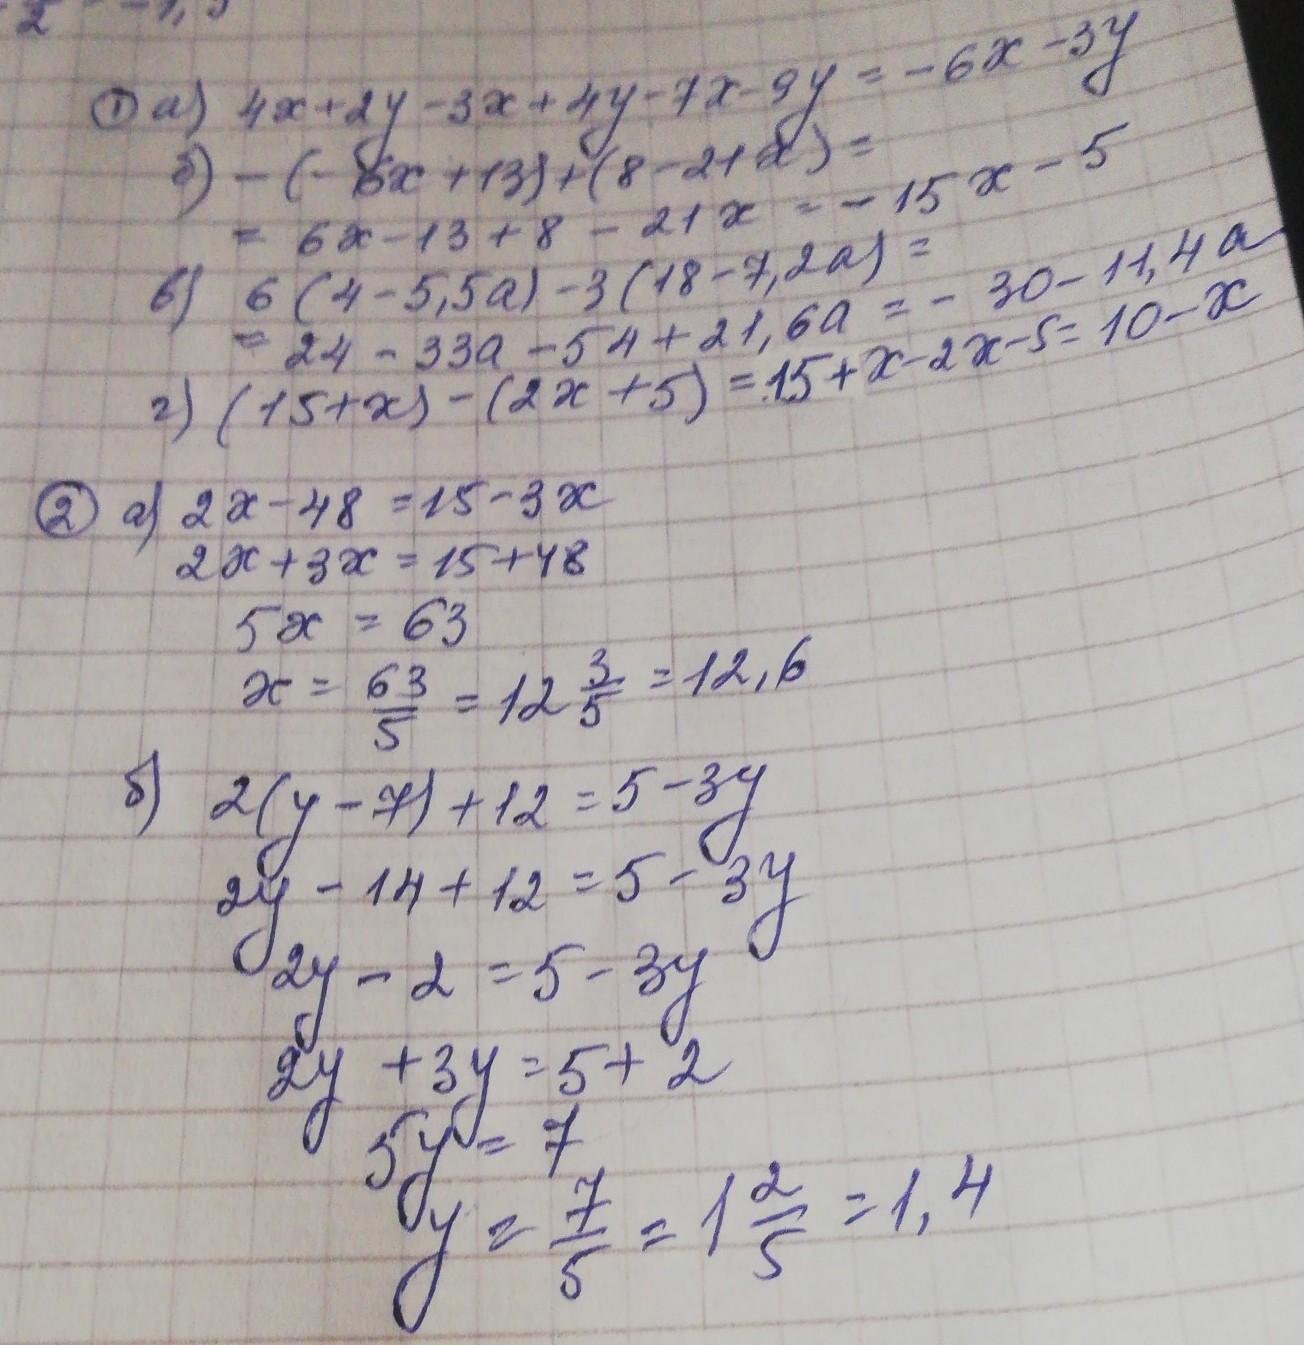 ① а) 4x+2y-3x+4y-7x-9y=-6x-3y
б) -(-6x+13)+(8-21x)=
= 6x-13+8-21x=-15x-5
в) 6(4-5,5a)-3(18-7,2a)=
= 24-33a-54+21,6a=-30-11,4a
г) (15+x)-(2x+5)=15+x-2x-5=10-x
② а) 2x-48=15-3x
2x+3x=15+48
5x=63
x=63/5=12 3/5=12,6
б) 2(y-7)+12=5-3y
2y-14+12=5-3y
2y-2=5-3y
2y+3y=5+2
5y=7
y=7/5=1 2/5=1,4